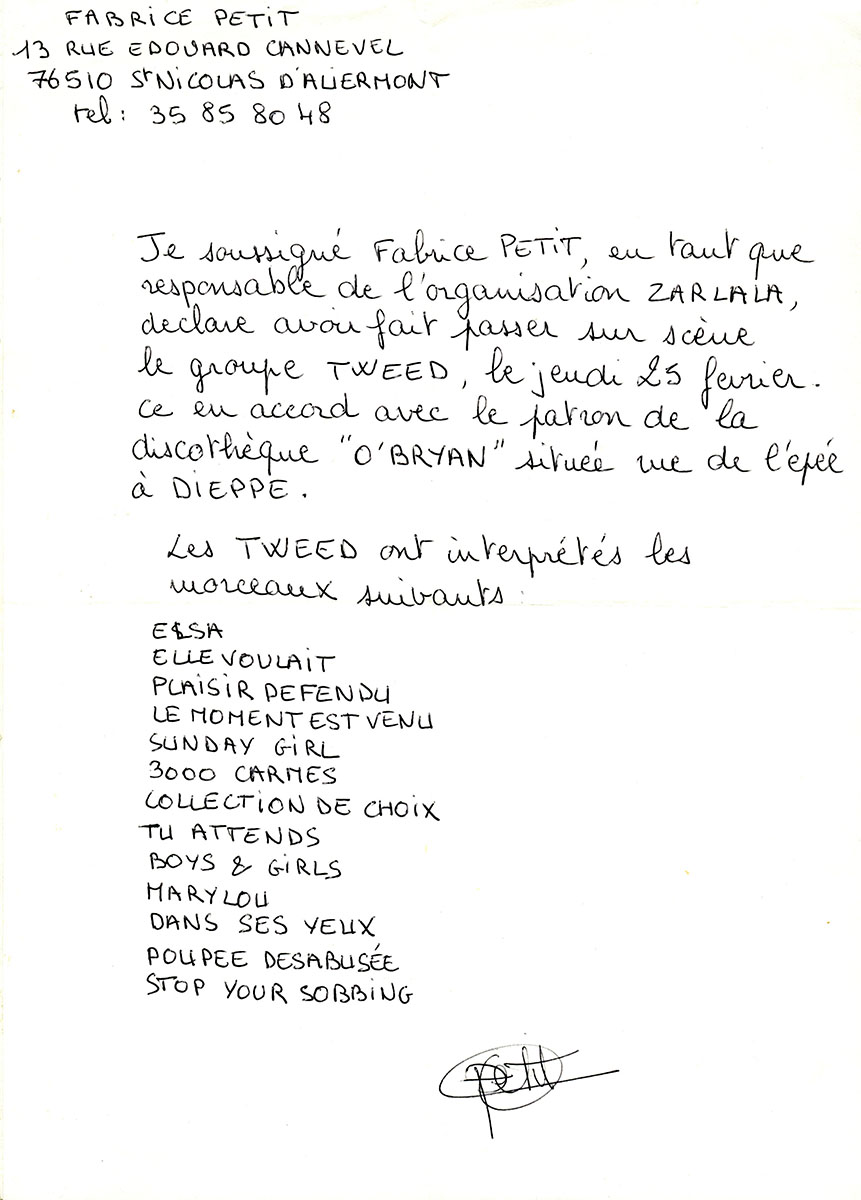 FABRICE PETIT
13 RUE EDOUARD CANNEVEL
76510 St NICOLAS D'ALIERMONT
tel: 35 85 80 48
Je soussigné Fabrice PETIT, en tant que
responsable de l'organisation ZARLALA,
declare avoir fait passer sur scène
le groupe TWEED, le jeudi 25 fevrier.
ce en accord avec le patron de la
discothèque "O'BRYAN" située rue de l'épée
à DIEPPE.
Les TWEED ont interprétés les
morceaux suivants :
ELSA
ELLE VOULAIT
PLAISIR DEFENDU
LE MOMENT EST VENU
SUNDAY GIRL
3000 CARMES
COLLECTION DE CHOIX
TU ATTENDS
BOYS & GIRLS
MARYLOU
DANS SES YEUX
POUPEE DESABUSÉE
STOP YOUR SOBBING
Petit